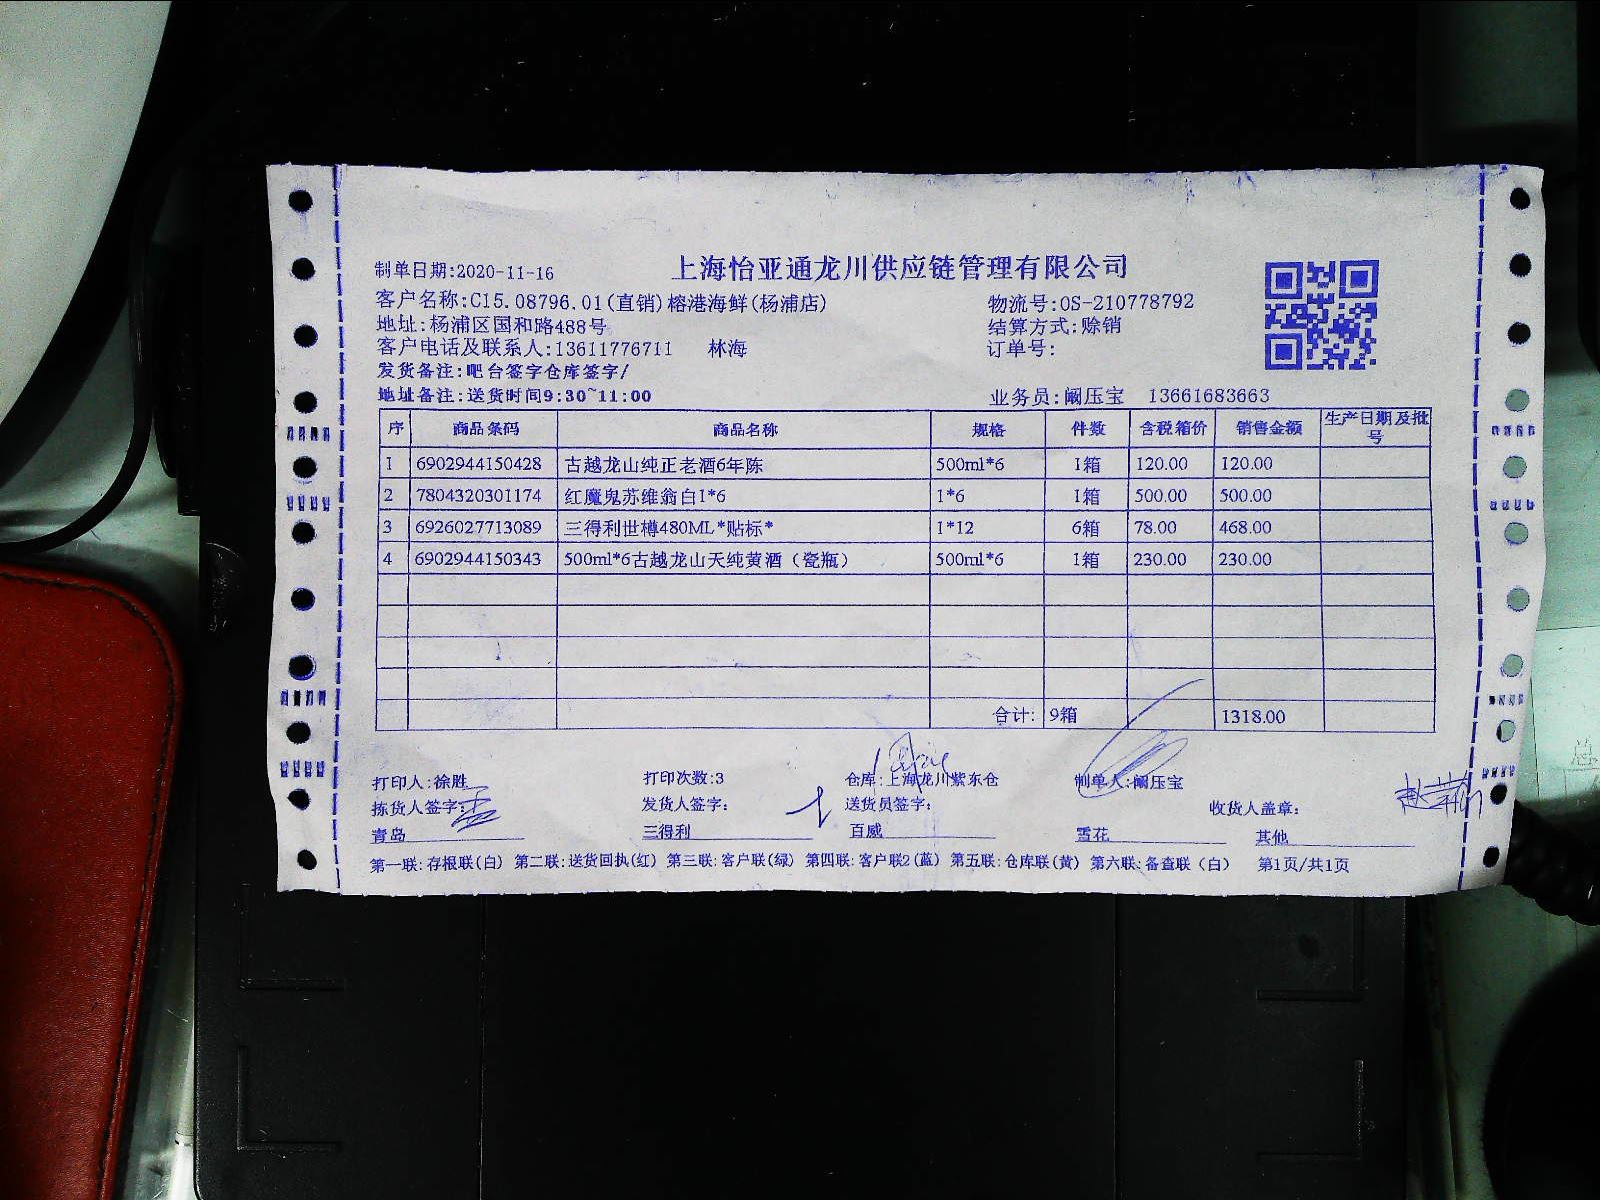 上海怡亚通龙川供应链管理有限公司
制单日期:2020-11-16
客户名称:C15.08796.01(直销)榕港海鲜(杨浦店) 物流号:OS-210778792
地址:杨浦区国和路488号 结算方式:赊销
客户电话及联系人:13611776711 林海 订单号:
发货备注:吧台签字仓库签字/
地址备注:送货时间9:30~11:00 业务员:阚压宝 13661683663
序 商品条码 商品名称 规格 件数 含税箱价 销售金额 生产日期及批号
1 6902944150428 古越龙山纯正老酒6年陈 500ml*6 1箱 120.00 120.00
2 7804320301174 红魔鬼苏维翁白1*6 1*6 1箱 500.00 500.00
3 6926027713089 三得利世樽480ML*贴标* 1*12 6箱 78.00 468.00
4 6902944150343 500ml*6古越龙山天纯黄酒（瓷瓶） 500ml*6 1箱 230.00 230.00
合计: 9箱 1318.00
打印人:徐胜 打印次数:3 仓库:上海龙川紫东仓 制单人:阚压宝
拣货人签字: 发货人签字: 送货员签字: 收货人盖章:
青岛 三得利 百威 雪花 其他
第一联:存根联(白) 第二联:送货回执(红) 第三联:客户联(绿) 第四联:客户联2(蓝) 第五联:仓库联(黄) 第六联:备查联（白） 第1页/共1页
总